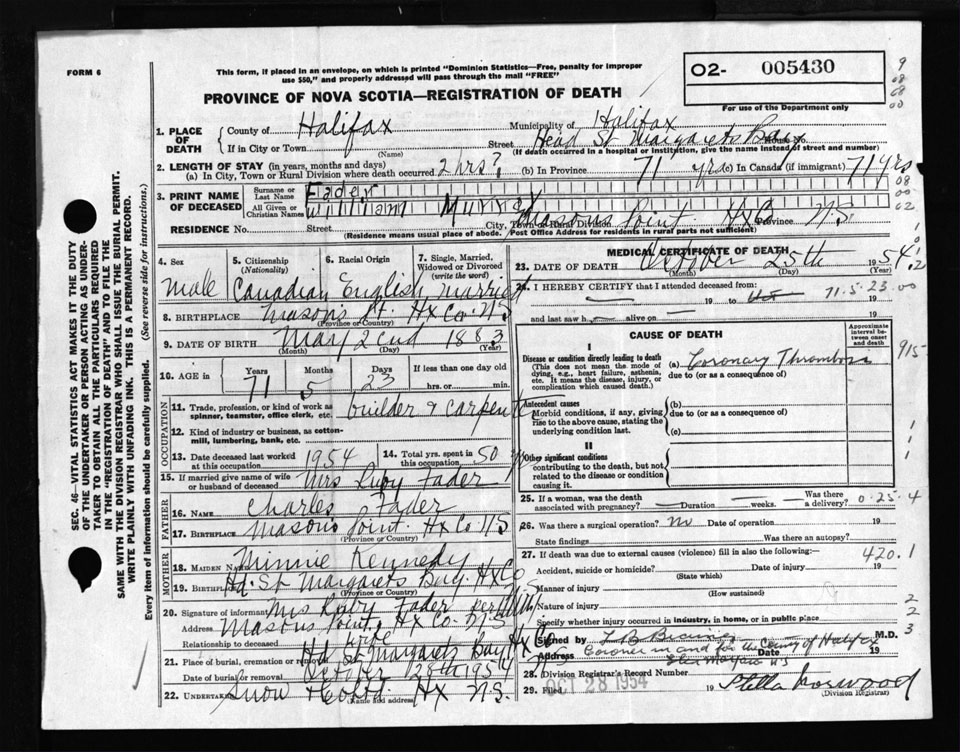 FORM 6
This form, if placed in an envelope, on which is printed "Dominion Statistics—Free, penalty for improper
use $50," and properly addressed will pass through the mail "FREE"
PROVINCE OF NOVA SCOTIA—REGISTRATION OF DEATH
O2- 005430
For use of the Department only
1. PLACE OF DEATH
County of Halifax Municipality of Halifax
If in City or Town (Name) Street Head St Margarets Bay House No.
(If death occurred in a hospital or institution, give the name instead of street and number)
2. LENGTH OF STAY (in years, months and days)
(a) In City, Town or Rural Division where death occurred 2 hrs? (b) In Province 71 yrs (c) In Canada (if immigrant) 71 yrs
3. PRINT NAME OF DECEASED
Surname or Last Name Fader
All Given or Christian Names William Murray
RESIDENCE No. Street City, Town or Rural Division Masons Point Hx Co. N.S.
(Residence means usual place of abode. Post Office Address for residents in rural parts not sufficient)
4. Sex Male
5. Citizenship (Nationality) Canadian
6. Racial Origin English
7. Single, Married, Widowed or Divorced (write the word) Married
8. BIRTHPLACE Masons Pt. Hx Co. N.S.
(Province or Country)
9. DATE OF BIRTH May 2nd 1883
(Month) (Day) (Year)
10. AGE in Years 71 Months 5 Days 23 If less than one day old hrs. or min.
OCCUPATION
11. Trade, profession, or kind of work as spinner, teamster, office clerk, etc. builder & carpenter
12. Kind of industry or business, as cotton-mill, lumbering, bank, etc.
13. Date deceased last worked at this occupation 1954
14. Total yrs. spent in this occupation 50
15. If married give name of wife or husband of deceased Mrs Ruby Fader
FATHER
16. NAME Charles Fader
17. BIRTHPLACE Masons Point. Hx Co N.S
(Province or Country)
MOTHER
18. MAIDEN NAME Minnie Kennedy
19. BIRTHPLACE Hd. St Margarets Bay. Hx Co
(Province or Country)
20. Signature of informant Mrs Ruby Fader
Address Masons Point, Hx Co. N.S
Relationship to deceased wife
21. Place of burial, cremation or removal Hd St Margarets Bay Hx Co
Date of burial or removal October 28th 1954
22. UNDERTAKER Snow Hx N.S.
(Name and address)
MEDICAL CERTIFICATE OF DEATH
23. DATE OF DEATH October 25th 1954
(Month) (Day) (Year)
24. I HEREBY CERTIFY that I attended deceased from:
19 to 71.5.23.00 19
and last saw h alive on 19
CAUSE OF DEATH
Approximate interval between onset and death
I
Disease or condition directly leading to death
(This does not mean the mode of dying, e.g., heart failure, asthenia, etc. It means the disease, injury, or complication which caused death.)
(a) Coronary Thrombosis
due to (or as a consequence of)
Antecedent causes
Morbid conditions, if any, giving rise to the above cause, stating the underlying condition last.
(b)
due to (or as a consequence of)
(c)
II
Other significant conditions
contributing to the death, but not related to the disease or condition causing it.
25. If a woman, was the death associated with pregnancy? Duration weeks. Was there a delivery? 0.25.4
26. Was there a surgical operation? no Date of operation 19
State findings Was there an autopsy?
27. If death was due to external causes (violence) fill in also the following:— 420.1
Accident, suicide or homicide? Date of injury 19
(State which)
Manner of injury
(How sustained)
Nature of injury
Specify whether injury occurred in industry, in home, or in public place
Signed by M.D.
Address Coroner in and for the County of Halifax Date 19
28. Division Registrar's Record Number
29. Filed OCT 28 1954 19 Stella
(Division Registrar)
SEC. 46—VITAL STATISTICS ACT MAKES IT THE DUTY
OF THE UNDERTAKER OR PERSON ACTING AS UNDER-
TAKER TO OBTAIN ALL THE PARTICULARS REQUIRED
IN THE "REGISTRATION OF DEATH" AND TO FILE THE
SAME WITH THE DIVISION REGISTRAR WHO SHALL ISSUE THE BURIAL PERMIT.
WRITE PLAINLY WITH UNFADING INK. THIS IS A PERMANENT RECORD.
Every item of information should be carefully supplied. (See reverse side for instructions.)